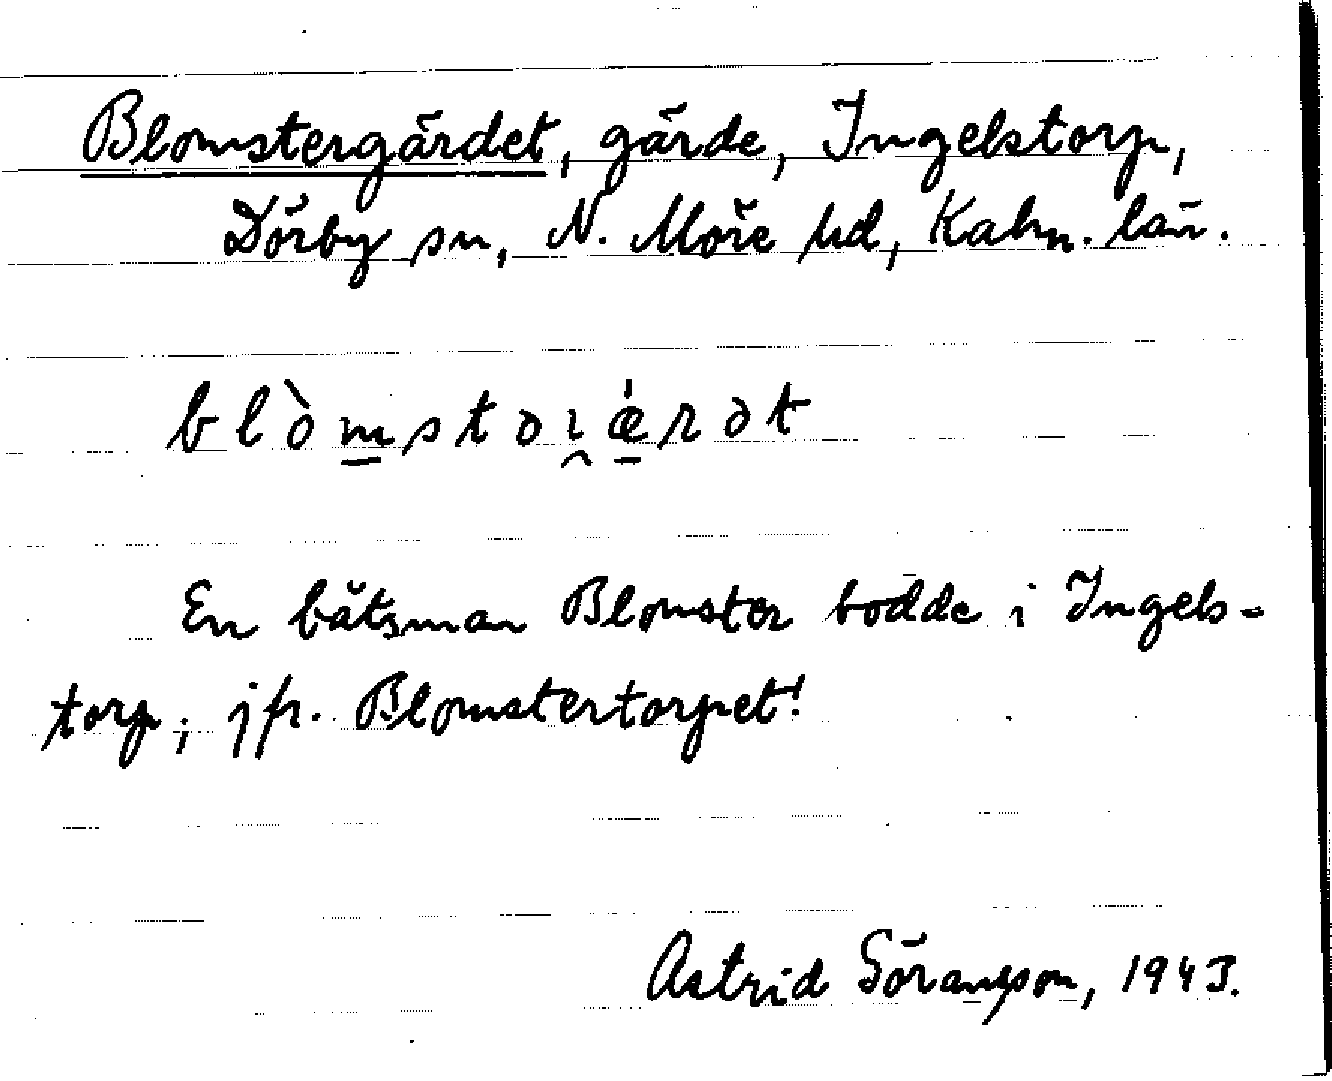 Blomstergärdet, gärde, Ingelstorp,
Dörby sn, N. Möre hd, Kalm. län.
blòm̲stəɿ̯æ̲̍rət
En båtsman Blomster bodde i Ingels-
torp, jfr. Blomstertorpet!
Astrid Göransson, 1943.